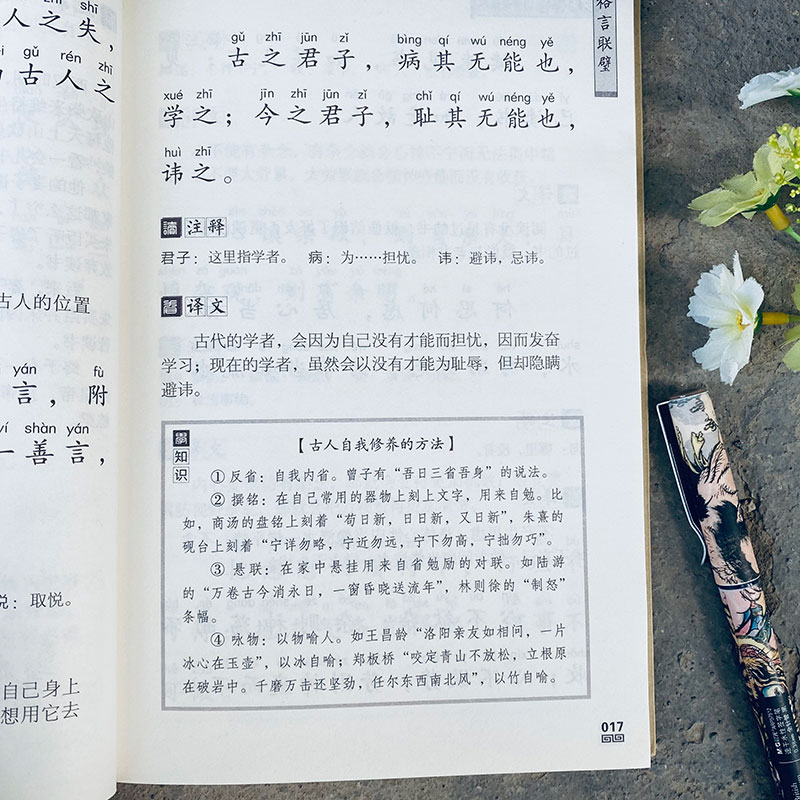 shī
人之失，
gǔ rén zhī
古人之
古人的位置
yán fù
言，附
shàn yán
一善言，
取悦。
自己身上
想用它去
格言联璧
gǔ zhī jūn zǐ bìng qí wú néng yě
古之君子，病其无能也，
xué zhī jīn zhī jūn zǐ chǐ qí wú néng yě
学之；今之君子，耻其无能也，
huì zhī
讳之。
读 注释
君子：这里指学者。 病：为……担忧。 讳：避讳，忌讳。
看 译文
古代的学者，会因为自己没有才能而担忧，因而发奋
学习；现在的学者，虽然会以没有才能为耻辱，但却隐瞒
避讳。
学知识
【古人自我修养的方法】
①反省：自我内省。曾子有“吾日三省吾身”的说法。
②撰铭：在自己常用的器物上刻上文字，用来自勉。比
如，商汤的盘铭上刻着“苟日新，日日新，又日新”，朱熹的
砚台上刻着“宁详勿略，宁近勿远，宁下勿高，宁拙勿巧”。
③悬联：在家中悬挂用来自省勉励的对联。如陆游
的“万卷古今消永日，一窗昏晓送流年”，林则徐的“制怒”
条幅。
④咏物：以物喻人。如王昌龄“洛阳亲友如相问，一片
冰心在玉壶”，以冰自喻；郑板桥“咬定青山不放松，立根原
在破岩中。千磨万击还坚劲，任尔东西南北风”，以竹自喻。
017